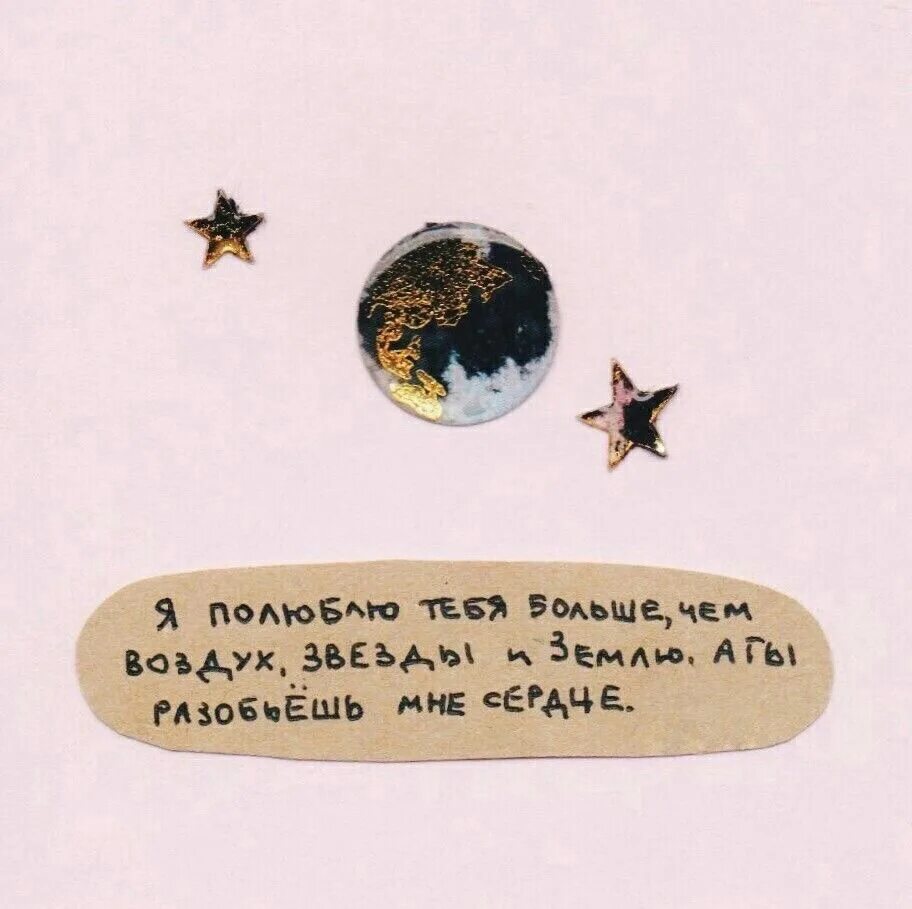 Я ПОЛЮБЛЮ ТЕБЯ БОЛЬШЕ, ЧЕМ
ВОЗДУХ, ЗВЕЗДЫ и ЗЕМЛЮ. А ТЫ
РАЗОБЬЁШЬ МНЕ СЕРДЦЕ.